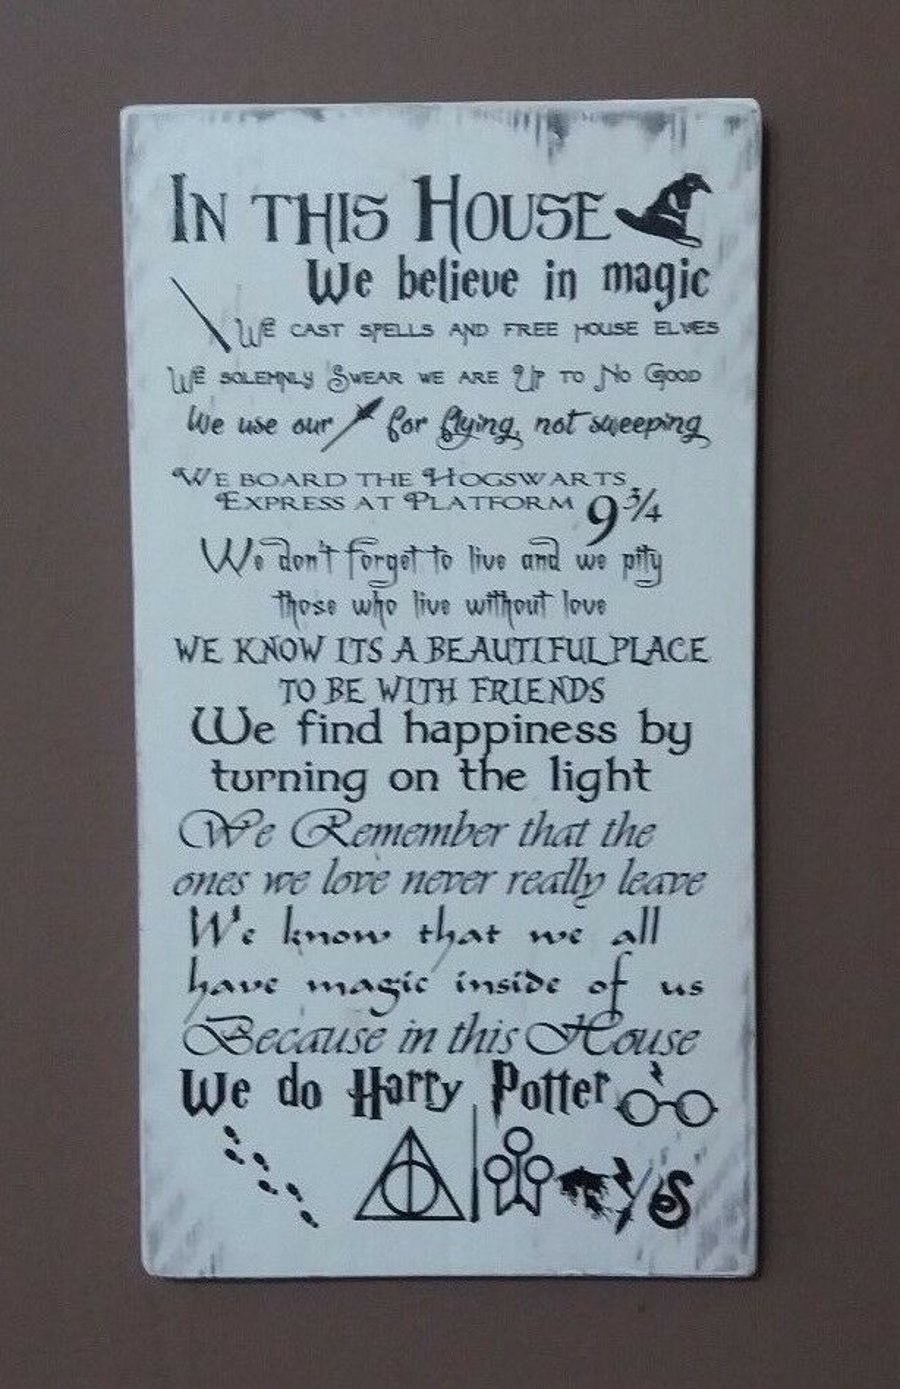 In this House
We believe in magic
We cast spells and free house elves
We solemnly Swear we are Up to No Good
We use our for flying, not sweeping
We board the Hogswarts
Express at Platform 9 3/4
We don't forget to live and we pity
those who live without love
WE KNOW ITS A BEAUTIFUL PLACE
TO BE WITH FRIENDS
We find happiness by
turning on the light
We Remember that the
ones we love never really leave
We know that we all
have magic inside of us
Because in this House
We do Harry Potter